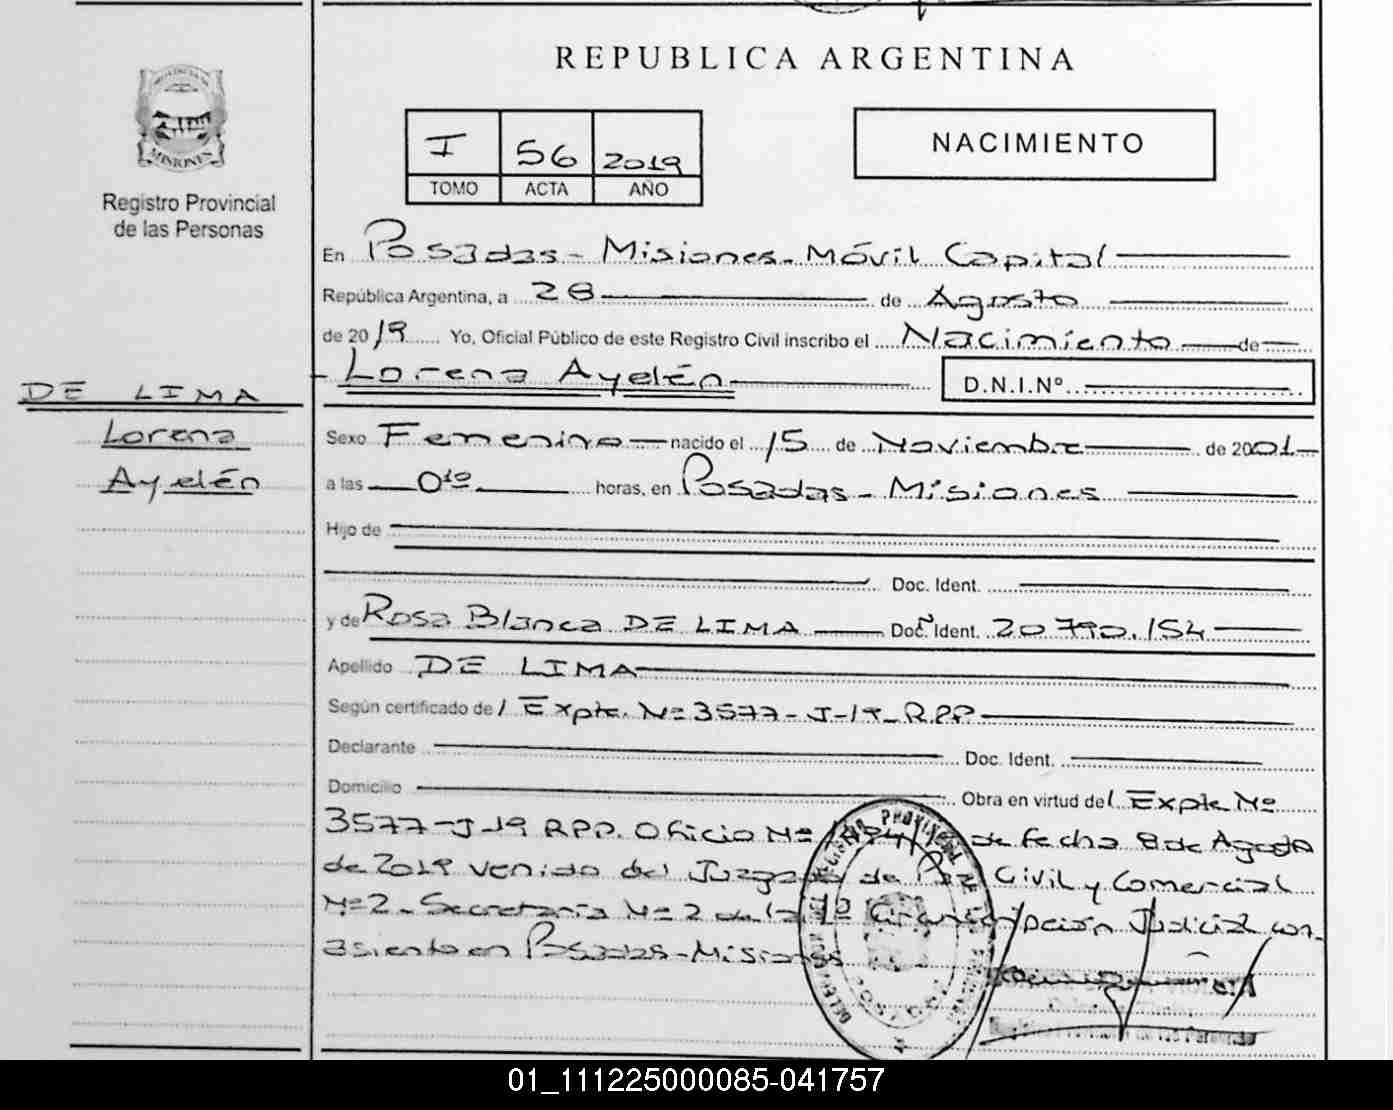 REPUBLICA ARGENTINA
PROVINCIA DE
MISIONES
Registro Provincial
de las Personas
I 56 2019
TOMO ACTA AÑO
NACIMIENTO
En Posadas - Misiones - Móvil Capital
República Argentina, a 28 de Agosto
de 2019 Yo, Oficial Público de este Registro Civil inscribo el Nacimiento de
Lorena Ayelén D.N.I.Nº
DE LIMA
Lorena
Ayelén
Sexo Femenino nacido el 15 de Noviembre de 2001
a las 01º horas, en Posadas - Misiones
Hijo de
Doc. Ident.
y de Rosa Blanca DE LIMA Doc. Ident. 20.790.154
Apellido DE LIMA
Según certificado de / Expte. Nº 3577-J-19_R.P.P.
Declarante Doc. Ident.
Domicilio Obra en virtud de / Expte Nº
3577-J-19 RPP. Oficio Nº de fecha 8 de Agosto
de 2019 venido del Juzgado de Paz Civil y Comercial
Nº2 - Secretaría Nº 2 de la 1º Circunscripción Judicial con
asiento en Posadas-Misiones
01_111225000085-041757